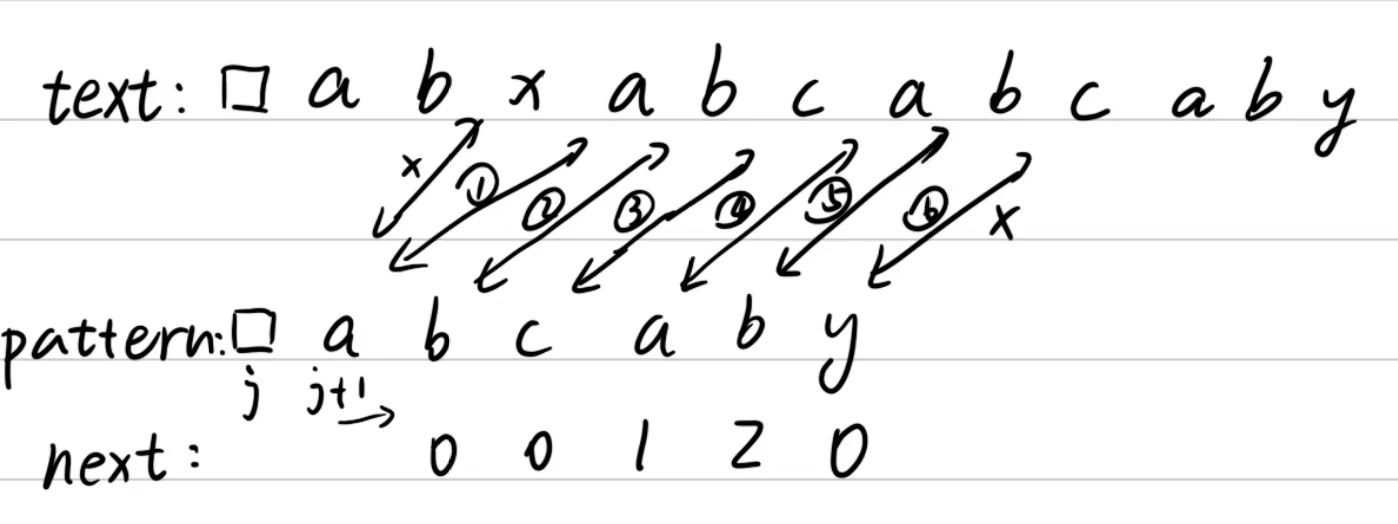 text: □ a b x a b c a b c a b y
x ① ② ③ ④ ⑤ ⑥ x
pattern: □ a b c a b y
j j+1
next: 0 0 1 2 0